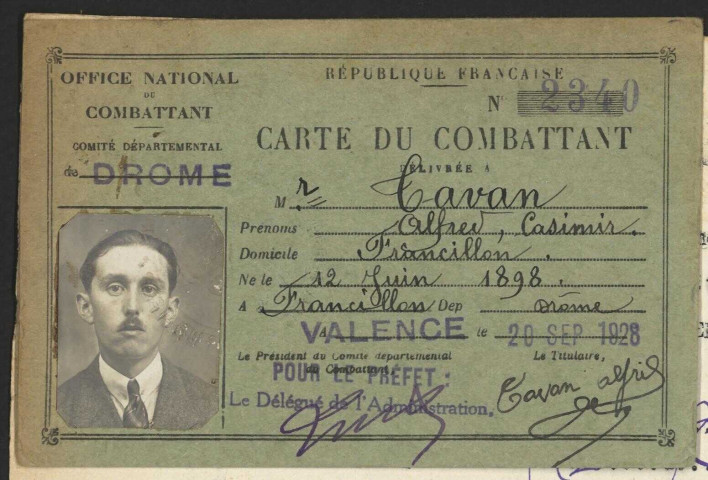 OFFICE NATIONAL
DU
COMBATTANT
COMITÉ DÉPARTEMENTAL
de DROME
RÉPUBLIQUE FRANÇAISE
N° 2340
CARTE DU COMBATTANT
DÉLIVRÉE A
Mr Tavan
Prénoms Alfred, Casimir.
Domicile Francillon.
Né le 12 Juin 1898.
A Francillon Dep Drôme
A VALENCE le 20 SEP 1928
Le Président du Comité départemental
du Combattant,
Le Titulaire,
POUR LE PRÉFET :
Le Délégué de l'Administration,
Tavan alfred